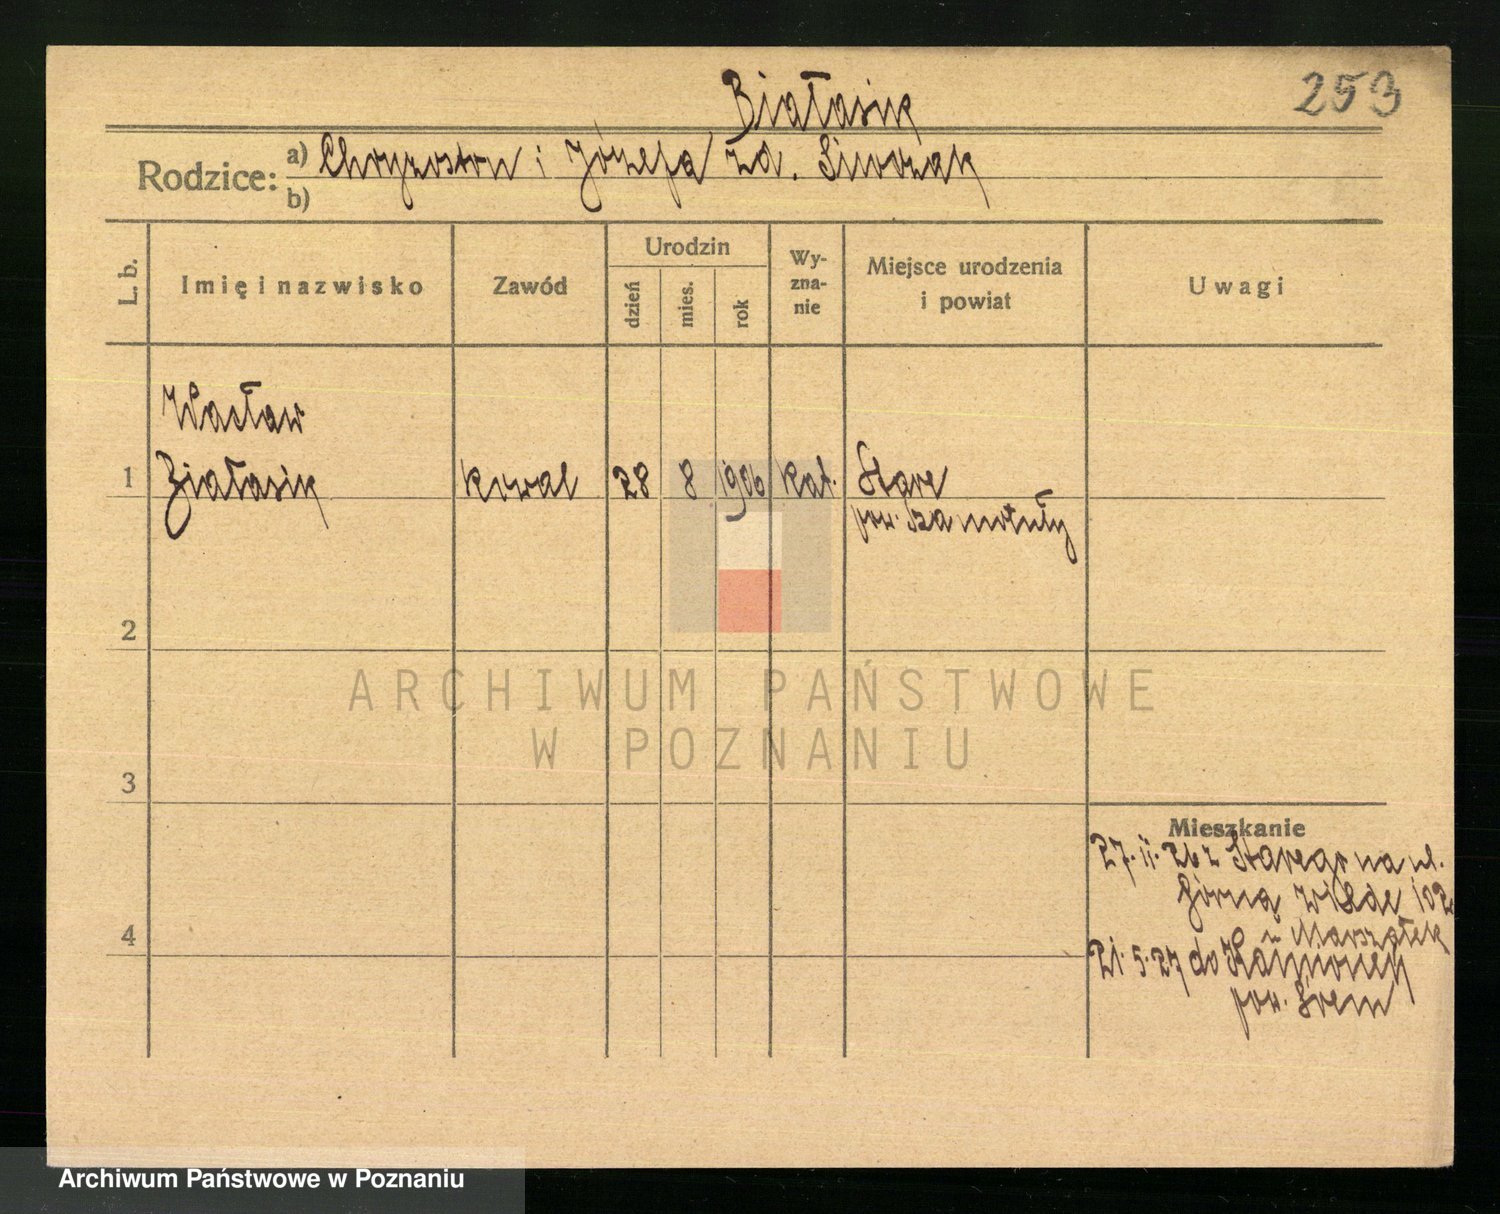 253
Białasik
Rodzice: a) Chryzostom i Józefa zd. Siwczak
b)
L. b.
Imię i nazwisko
Zawód
Urodzin
dzień
mies.
rok
Wy-
zna-
nie
Miejsce urodzenia
i powiat
Uwagi
Wacław
1 Białasik kowal 28 8 1906 kat. Stare
pow. Szamotuły
2
ARCHIWUM PAŃSTWOWE
W POZNANIU
3
Mieszkanie
27.11.26 z Starego na ul.
Górną Wildę 102
u Marszałek
4
21.5.27 do
pow. Śrem
Archiwum Państwowe w Poznaniu